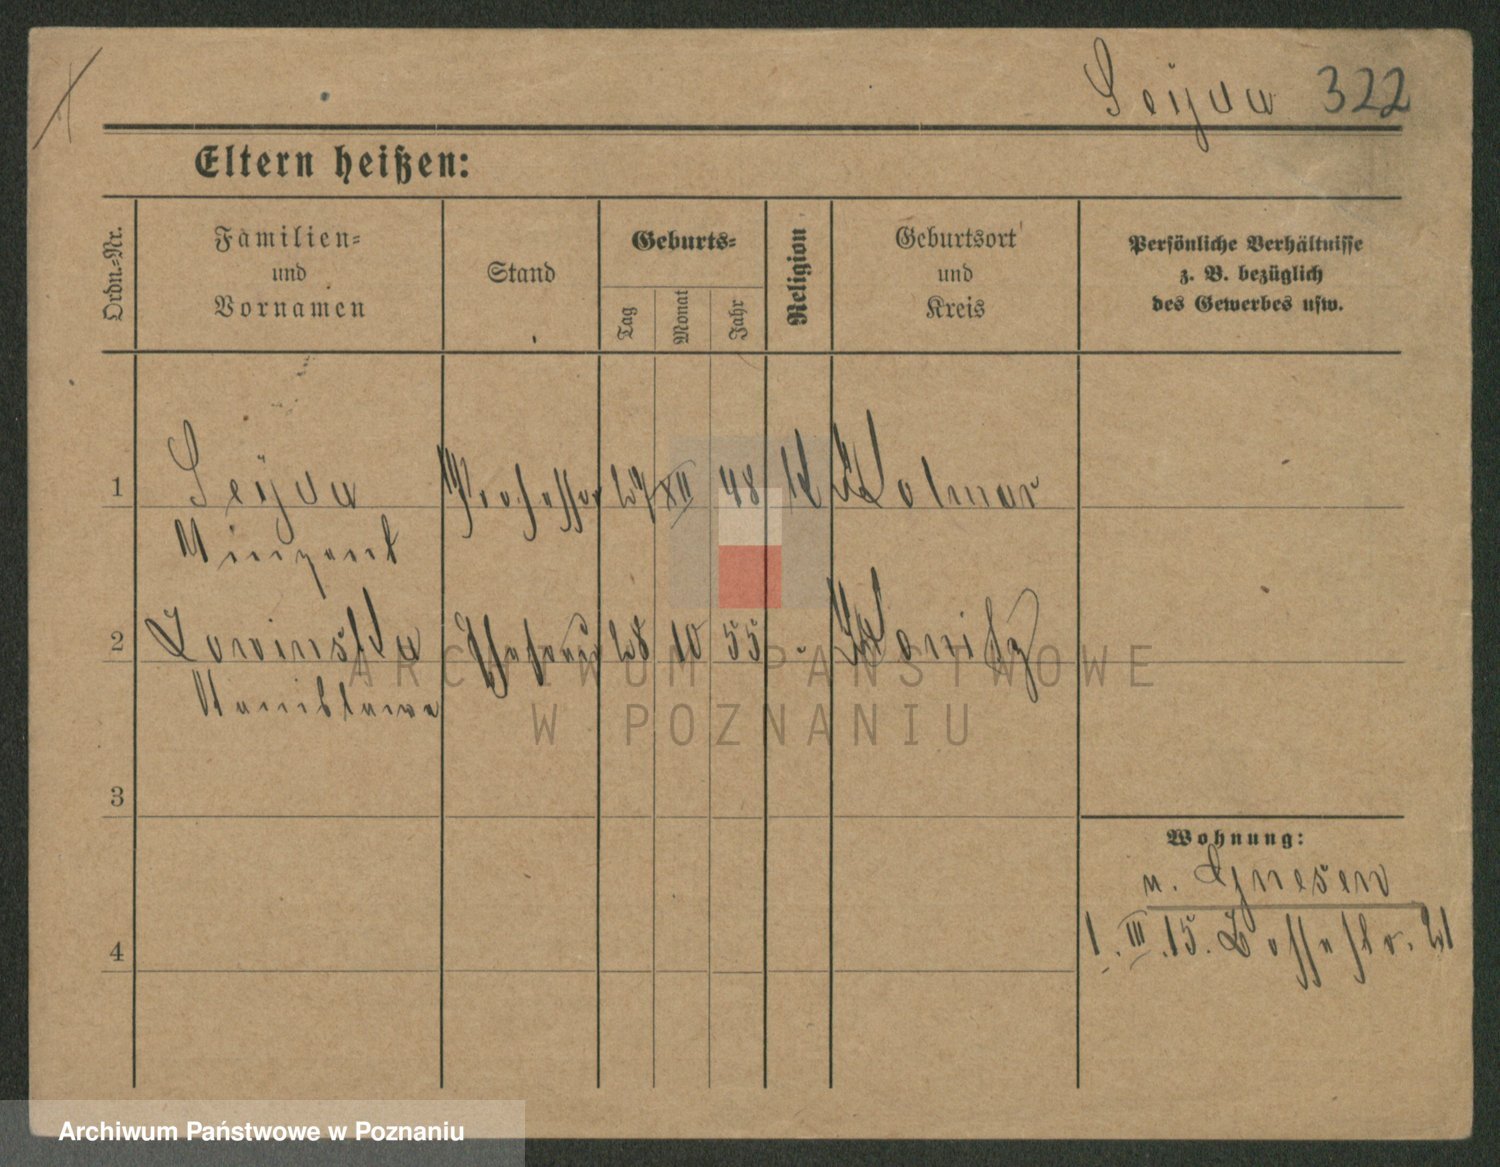 Seyda 322
Eltern heißen:
Ordn.-Nr.
Familien-
und
Vornamen
Stand
Geburts-
Tag
Monat
Jahr
Religion
Geburtsort
und
Kreis
Persönliche Verhältnisse
z. B. bezüglich
des Gewerbes usw.
1 Seyda Professor 27 XII 48 k Kolmar
Vinzent
2 Ehefrau 28 10 55 " Konitz
Stanislawa
3
4
Wohnung:
n. Gnesen
1. III. 15. 21
ARCHIWUM PAŃSTWOWE
W POZNANIU
Archiwum Państwowe w Poznaniu